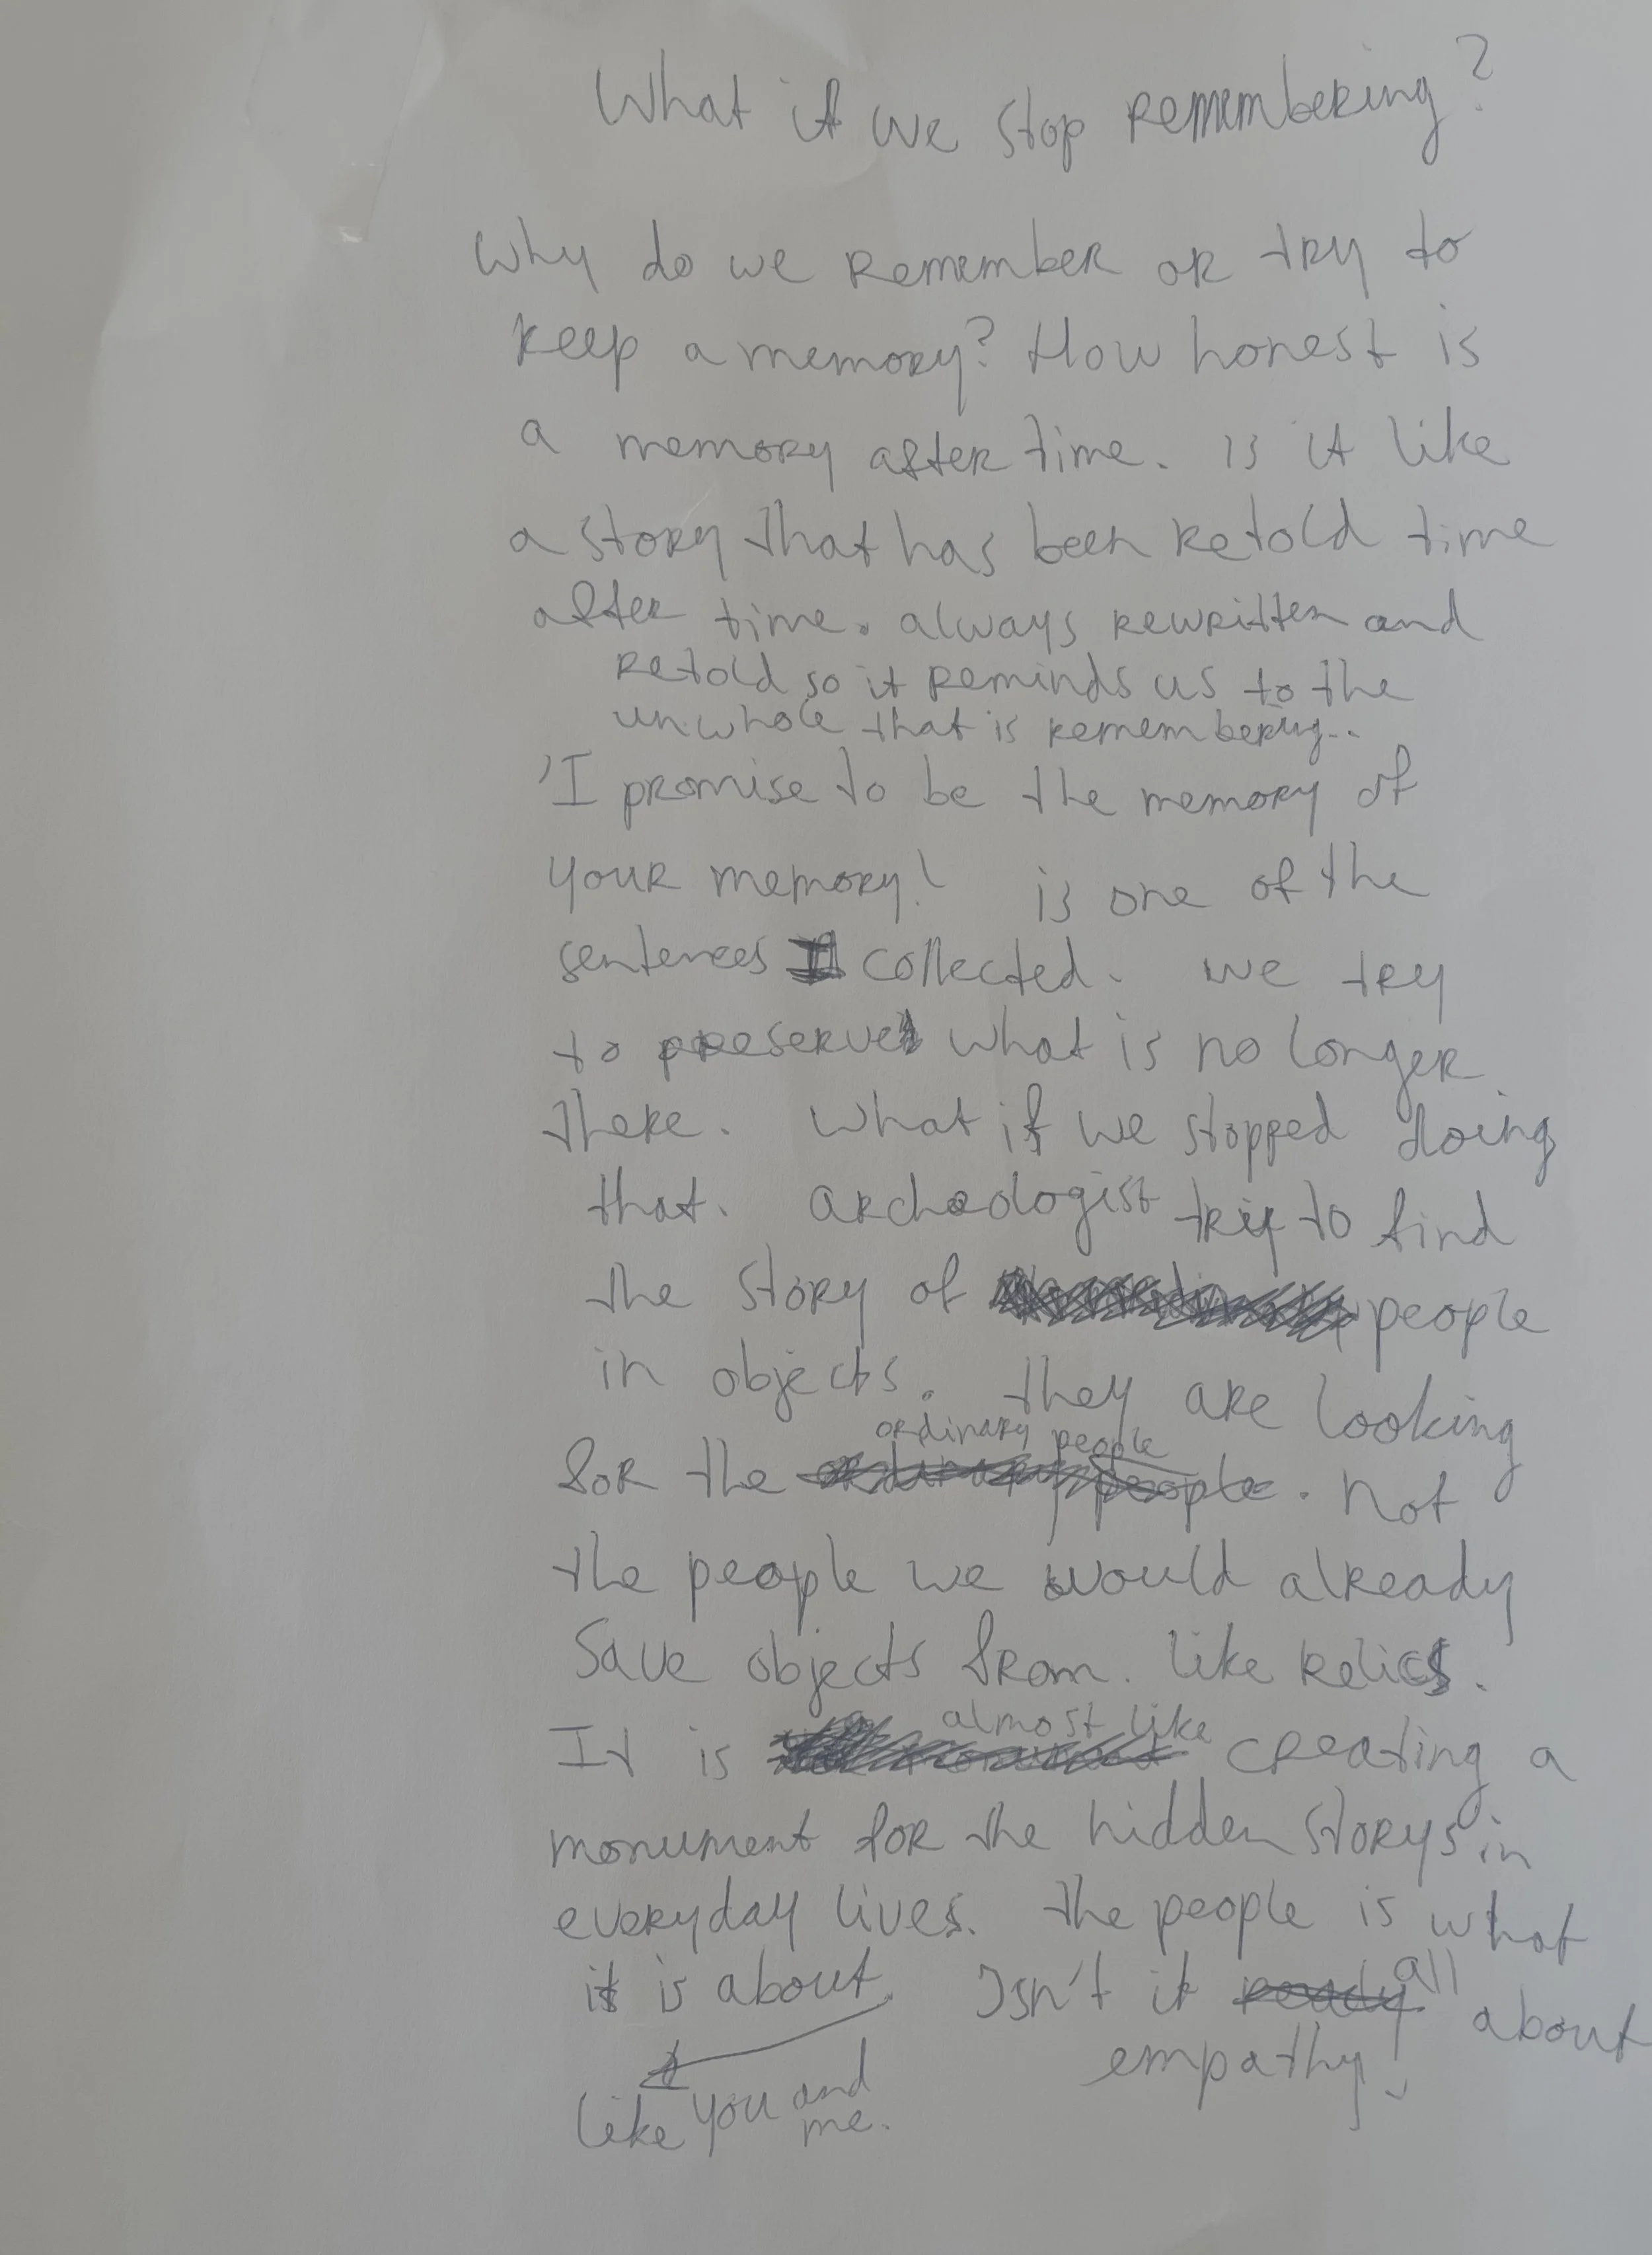 What if we stop remembering?
Why do we remember or try to
keep a memory? How honest is
a memory after time. Is it like
a story that has been retold time
after time. always rewritten and
retold so it reminds us to the
unwhole that is remembering..
'I promise to be the memory of
your memory!' is one of the
sentences I collected. we try
to preserve what is no longer
there. What if we stopped doing
that. archeologist try to find
the story of people
in objects. they are looking
ordinary people
for the ordinary people. not
the people we would already
save objects from. like relics.
almost like
It is creating a
monument for the hidden storys in
everyday lives. the people is what
it is about. Isn't it all about
empathy!
like you and
me.